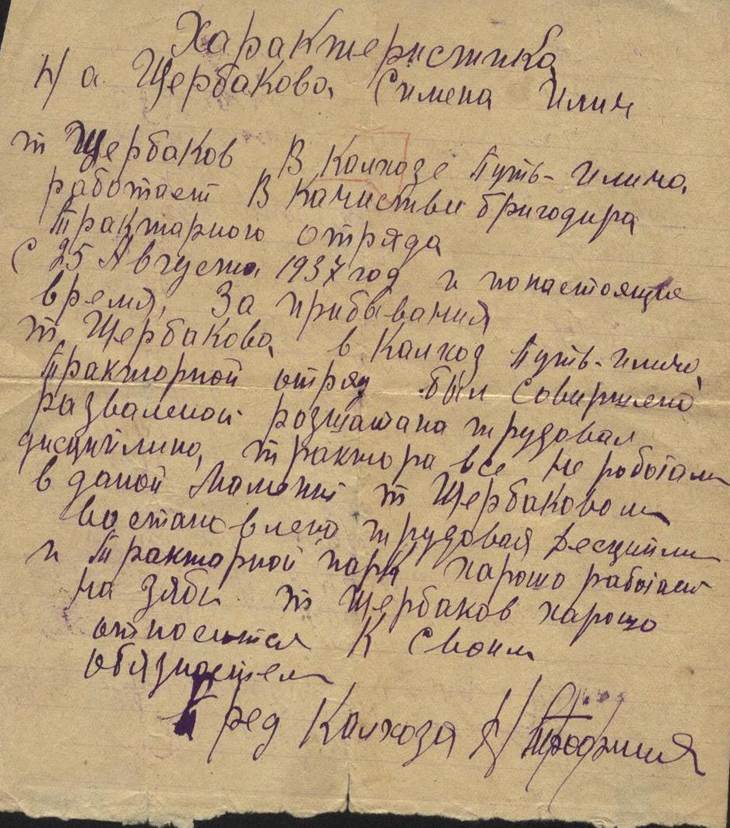 Характеристика
на Щербакова Симена Илич
т Щербаков В Калхозе Путь-Илича
работает В качистви бригодира
Трактарного отряда
С 25 Августа 1937 год и по настоящие
время, За прибывания
т Щербакова в Калхоз Путь-Илича
Тракторной отряд был Совиршено
разваленой розшатана трудовая
дисциплина, трактора все не роботали
в даной Мамент т Щербаковом
востановлено трудовая Десциплин
и Тракторной парк харошо работает
на зяби т Щербаков харошо
относится К Своим
обязностем
Пред Калхоза